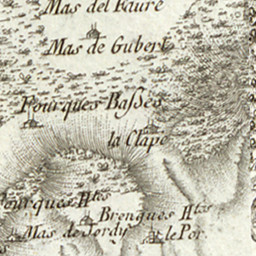 Mas del Faure
Mas de Gubert
Fourques Baſses
la Clape
Fourques Htes
Brenques Htes
Mas de Jordy
le Por